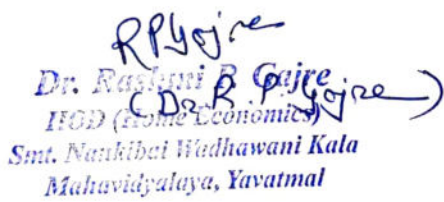 RPGajre
Dr. Rashmi P. Gajre
(Dr. R. P. Gajre)
HOD (Home Economics)
Smt. Nankibai Wadhawani Kala
Mahavidyalaya, Yavatmal